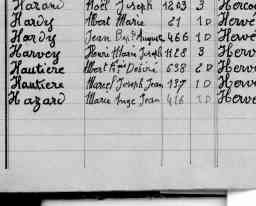 Harand Noël Joseph 1203 3 Herco
Hardy Albert Marie 21 1D Hervé
Hardy Jean Bap. Auguste 466 1D Hervé
Harvey Henri Marie Joseph 1128 3 Herv
Hautière Albert Désiré 638 2D Herv
Hautière Marcel Joseph Jean 137 1D Herv
Hazard Marie Ange Jean 416 1D Herv